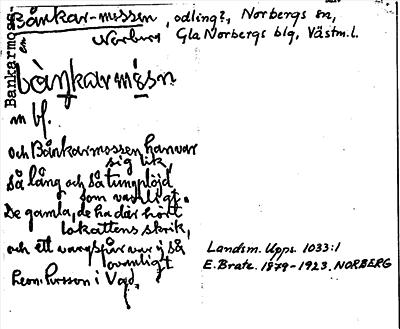 Bankarmoss-
Bånkar-mossen, odling?, Norbergs sn,
Norberg Gla Norbergs blg, Västm.l.
bàŋkarmósn
m bf.
och Bånkarmossen han var
sig lik,
så lång och så tungplöjd
som vanligt.
De gamla, de ha där hört
lokattens skrik,
och ett vargspår var ej så
ovanligt
Leon. Persson i Vgd.
Landsm. Upps. 1033:1
E. Brate. 1879-1923. NORBERG